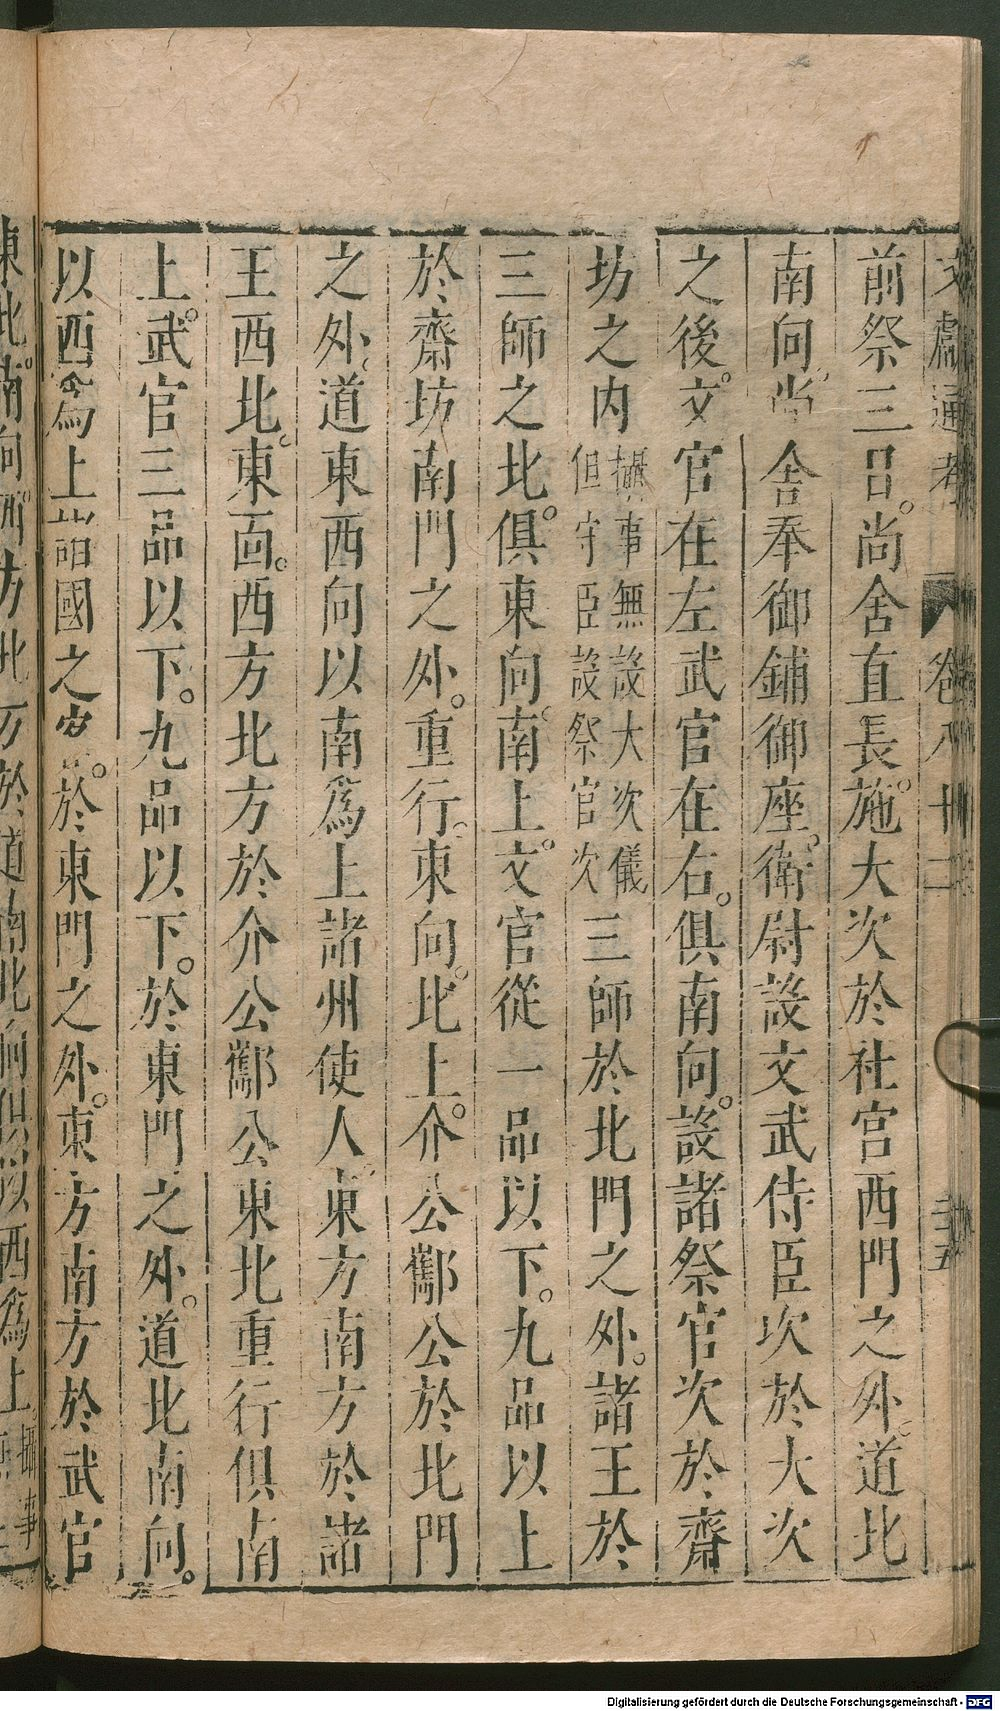 文獻通考 卷八十二 三五
前祭三日。尚舍直長。施大次於社宮西門之外。道北
南向。尚舍奉御鋪御座。衛尉設文武侍臣次於大次
之後。文官在左武官在右。俱南向。設諸祭官次於齋
坊之内攝事無設大次儀但守臣設祭官次三師於北門之外。諸王於
三師之北。俱東向。南上。文官從一品以下。九品以上
於齋坊南門之外。重行。東向。北上。介公酅公於北門
之外。道東西向以南爲上諸州使人東方南方於諸
王西北。東面。西方北方於介公酅公東北重行俱南
上。武官三品以下。九品以下。於東門之外。道北南向。
以西爲上諸國之客。於東門之外。東方南方於武官
東北。南向西方北方於道南北向俱以西爲上攝事
Digitalisierung gefördert durch die Deutsche Forschungsgemeinschaft - DFG